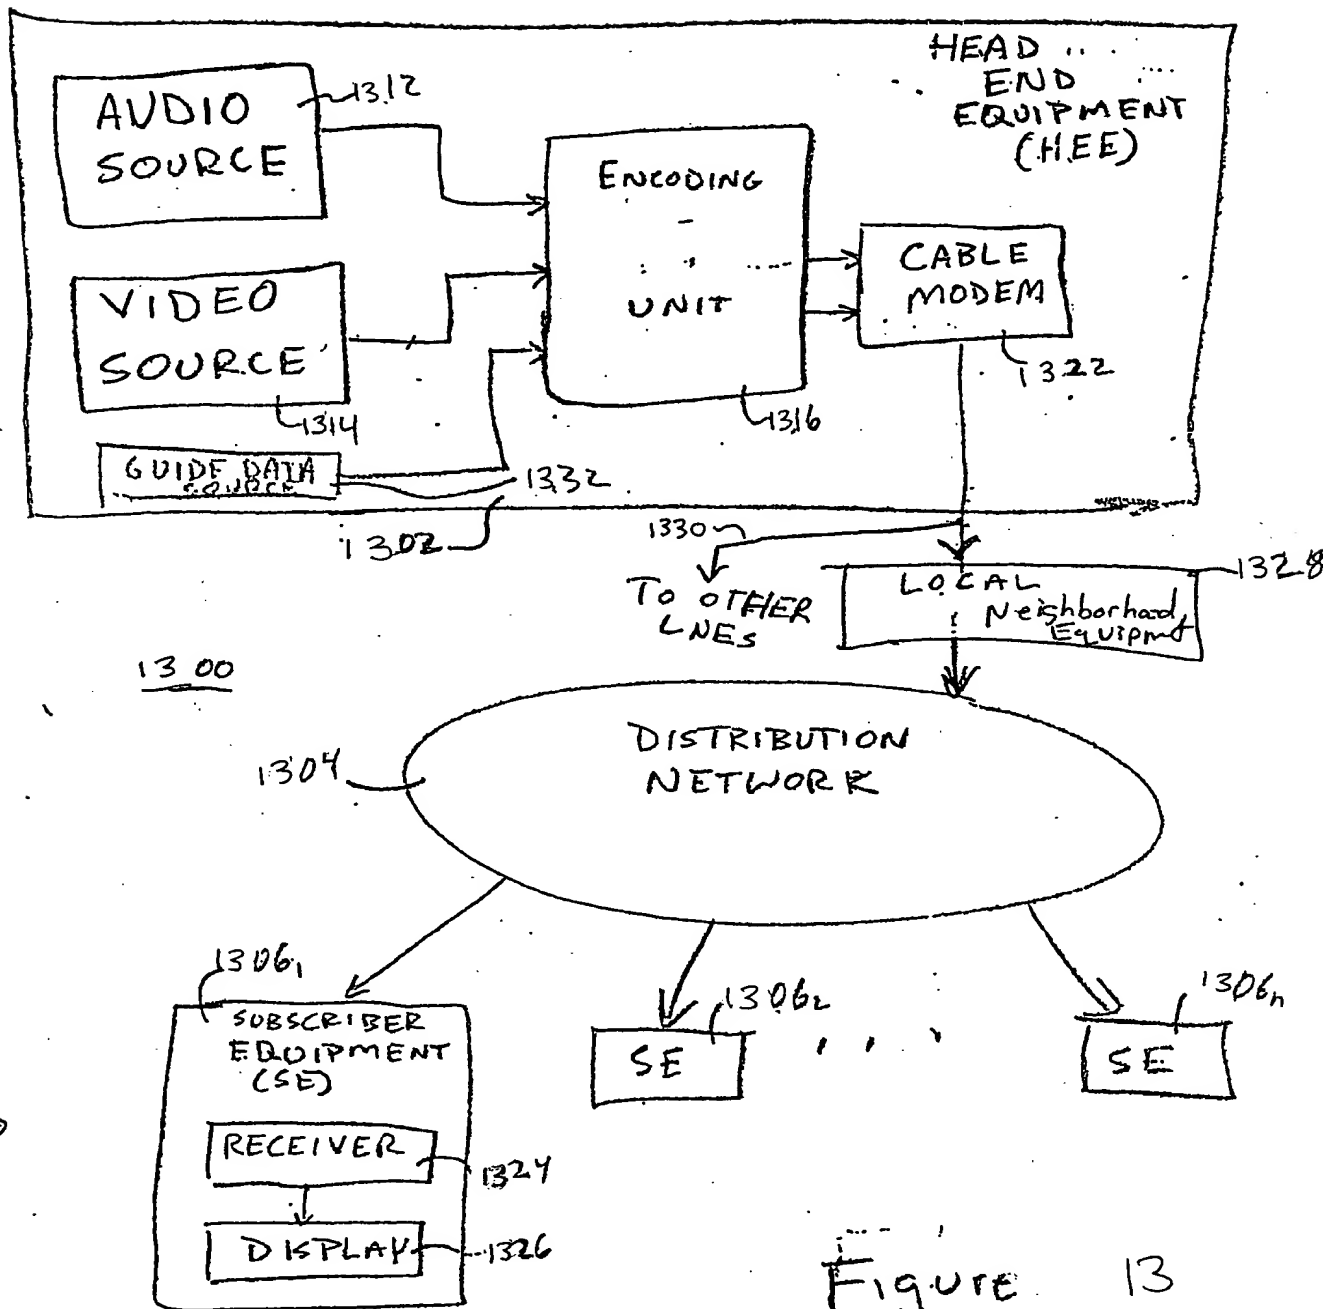 HEAD
END
EQUIPMENT
(HEE)
AUDIO
SOURCE
1312
ENCODING
UNIT
CABLE
MODEM
VIDEO
SOURCE
1314
1316
1322
GUIDE DATA
SOURCE
1332
1302
1330
TO OTHER
LNES
LOCAL
Neighborhad
Equipmt
1328
1300
DISTRIBUTION
NETWORK
1304
1306₁
SUBSCRIBER
EQUIPMENT
(SE)
RECEIVER
1324
DISPLAY
1326
SE
1306₂
. . .
SE
1306n
Figure 13